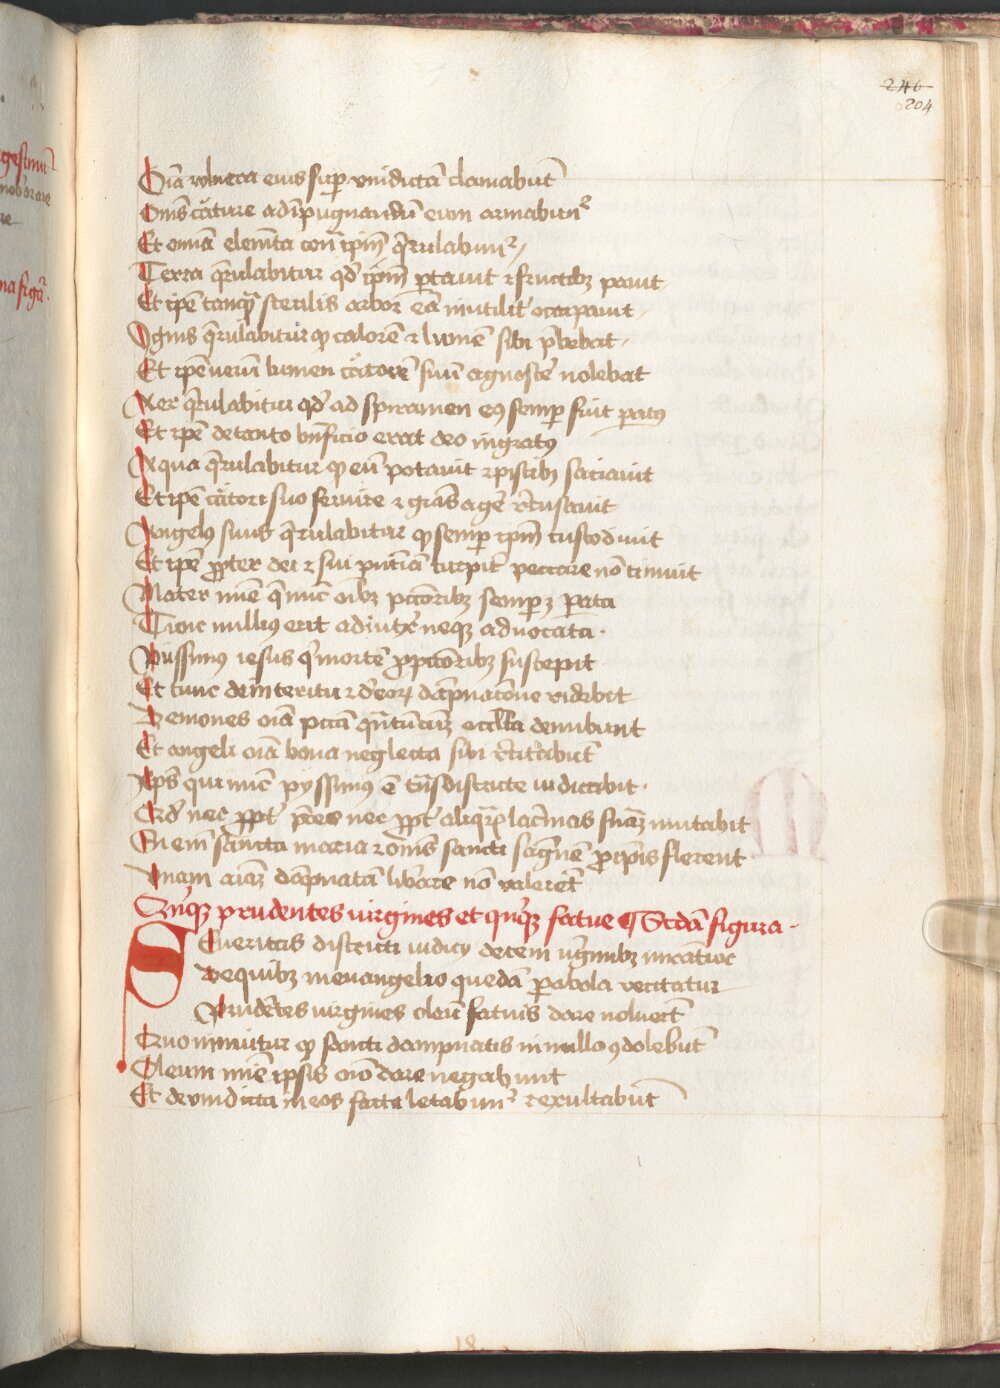 246
204
Oīa wlnera eius suꝑ vindictā clamabūt
Om̄s cāture ad īpugnandū eum armabunᵗ
Et omīa elem̄ta cont̄ ip̄m q̄rulabunᵗ
Terra q̄rulabitur qd̄ ip̄m ꝑtauit ⁊ fructibꝫ pauit
Et ip̄e tanqͣ sterilis arbor eā inutilit̄ occupauit
Ignis q̄rulabitur qꝫ calorē ⁊ lumē sibi p̄bebat
Et ip̄e verū lumen cātorē suū agnosc̄e nolebat
Aer q̄rulabitur qd̄ ad spiramen eiꝰ semꝑ fuit ꝑatꝰ
Et ip̄e de tanto bn̄ficio erat deo ingratꝰ
Aqua q̄rulabitur qꝫ eū potauit ⁊ piscibꝫ saciauit
Et ip̄e cātori suo seruire ⁊ gr̄as aḡe r̄cusauit
Angelꝰ suus q̄rulabitur qꝫ semꝑ ip̄m custodiuit
Et ip̄e ꝓpter dei ⁊ sui pn̄tiā turpit̄ peccare nō timuit
Mater mīe q̄ nūc oībꝫ pctōribꝫ semꝑ ꝫ ꝑata
Tunc nulliꝰ erit adiutͥx neqꝫ aduocata ·
Piissimꝰ iesus qͥ mortē ꝓ pctōribꝫ suscepit
Et tunc de interitu ⁊ d̄ eoꝝ dāpnatione ridebit
Demones oīa pctā qn̄tūcūqꝫ occulta denūbunt
Et angeli oīa bona neglecta sibi r̄citabūt
Xp̄s qui nūc pyssimꝰ ē tūc districte iudicabit ·
Qd̄ nec ꝓpt̄ p̄ces nec ꝓpt̄ aliquaꝝ lac̄mas sn̄iaꝫ mutabit
Si em̄ sancta maria ⁊ om̄s sancti sāguinē ꝓ ip̄is flerent
Vnam aīaꝫ dāpnatā lib̄are nō valerēt
Qͥnqꝫ prudentes virgines et qͥnqꝫ fatue ¶ Scd̄a figura ·
Seueritas districti iudicij decem v̄ginibꝫ
De quibꝫ in euangelio quedā ꝑabola recitatur
Prudētes virgines oleū fatuis dare noluert̄
Quo innuitur qꝫ sancti dampnatis in nullo ꝯdolebūt
Oleum mīe ipsis oīo dare negabunt
Et de vindicta in eos facta letabunᵗ ⁊ exultabūt